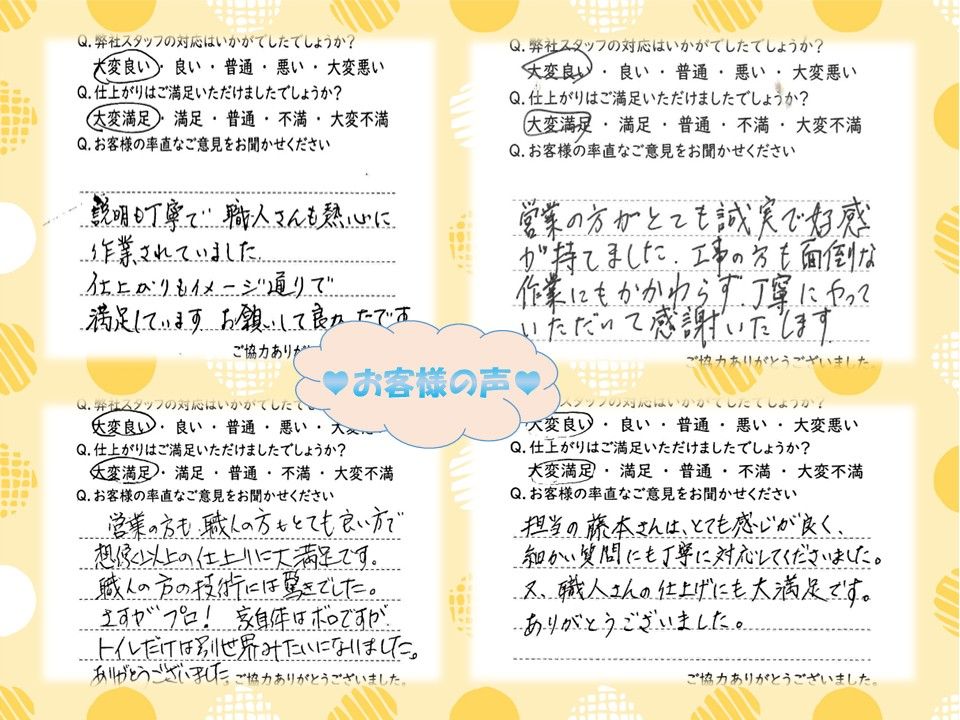 Q. 弊社スタッフの対応はいかがでしたでしょうか?
大変良い ・ 良い ・ 普通 ・ 悪い ・ 大変悪い
Q. 仕上がりはご満足いただけましたでしょうか?
大変満足 ・ 満足 ・ 普通 ・ 不満 ・ 大変不満
Q. お客様の率直なご意見をお聞かせください
説明も丁寧で 職人さんも熱心に
作業されていました。
仕上がりもイメージ通りで
満足しています お願いして良かったです
ご協力ありが
Q. 弊社スタッフの対応はいかがでしたでしょうか?
大変良い ・ 良い ・ 普通 ・ 悪い ・ 大変悪い
Q. 仕上がりはご満足いただけましたでしょうか?
大変満足 ・ 満足 ・ 普通 ・ 不満 ・ 大変不満
Q. お客様の率直なご意見をお聞かせください
営業の方がとても誠実で好感
が持てました。工事の方も面倒な
作業にもかかわらず丁寧にやって
いただいて感謝いたします
ご協力ありがとうございました。
♥お客様の声♥
Q. 弊社スタッフの対応はいかがでしたでし
大変良い ・ 良い ・ 普通 ・ 悪い ・ 大変
Q. 仕上がりはご満足いただけましたでしょうか?
大変満足 ・ 満足 ・ 普通 ・ 不満 ・ 大変不満
Q. お客様の率直なご意見をお聞かせください
営業の方も、職人の方もとても良い方で
想像以上の仕上りに大満足です。
職人の方の技術には驚きでした。
さすがプロ! 家自体はボロですが
トイレだけは別世界みたいになりました。
ありがとうございました。
ご協力ありがとうございました。
弊社スタッフの対応はいかがでしたでしょうか?
大変良い ・ 良い ・ 普通 ・ 悪い ・ 大変悪い
Q. 仕上がりはご満足いただけましたでしょうか?
大変満足 ・ 満足 ・ 普通 ・ 不満 ・ 大変不満
Q. お客様の率直なご意見をお聞かせください
担当の藤本さんは、とても感じが良く、
細かい質問にも丁寧に対応してくださいました。
又、職人さんの仕上げにも大満足です。
ありがとうございました。
ご協力ありがとうございました。